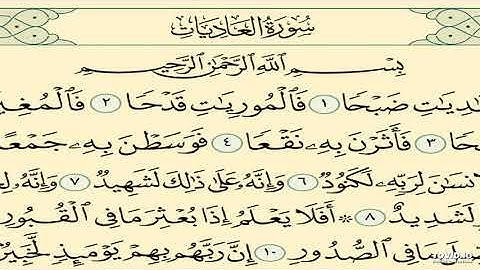 سُورَةُ العَادِيَات
بِسْمِ ٱللَّهِ ٱلرَّحْمَٰنِ ٱلرَّحِيمِ
ضَبْحًا ١ فَٱلْمُورِيَٰتِ قَدْحًا ٢
٣ فَأَثَرْنَ بِهِۦ نَقْعًا ٤ فَوَسَطْنَ بِهِۦ
لِرَبِّهِۦ لَكَنُودٌ ٦ وَإِنَّهُۥ عَلَىٰ ذَٰلِكَ لَشَهِيدٌ ٧ وَإِنَّهُۥ
لَشَدِيدٌ ٨ ۞ أَفَلَا يَعْلَمُ إِذَا بُعْثِرَ مَا فِى ٱلْقُبُورِ
مَا فِى ٱلصُّدُورِ ١٠ إِنَّ رَبَّهُم بِهِمْ يَوْمَئِذٍ لَّخَبِيرٌ